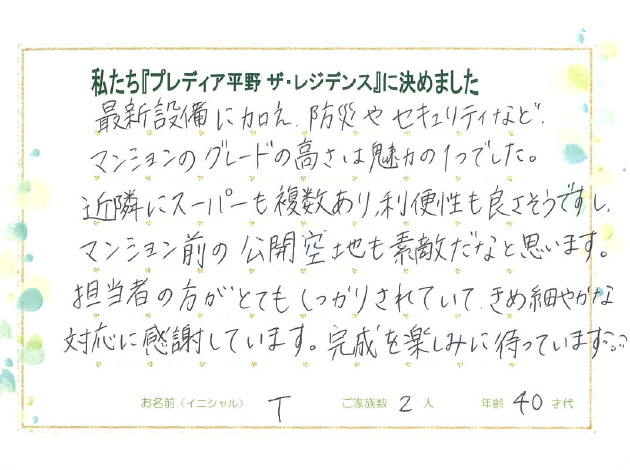 私たち『プレディア平野 ザ・レジデンス』に決めました
最新設備に加え、防災やセキュリティなど、
マンションのグレードの高さは魅力の1つでした。
近隣にスーパーも複数あり、利便性も良さそうですし、
マンション前の公開空地も素敵だなと思います。
担当者の方がとてもしっかりされていて、きめ細やかな
対応に感謝しています。完成を楽しみに待っています
お名前（イニシャル） T ご家族数 2 人 年齢 40 才代